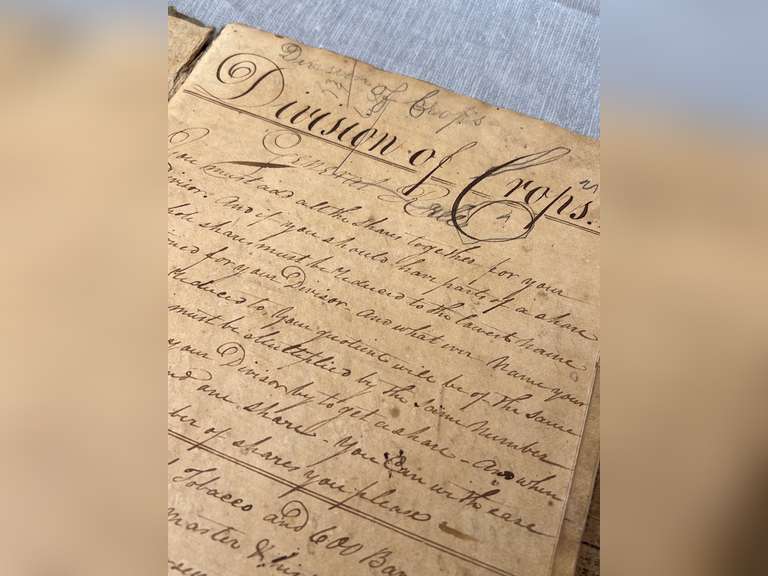 Division of Crops
Division of Crops.
General Rule
You must add all the shares together for your
Divisor. And if you should have parts of a share
shares must be reduced to the lowest name
for your Divisor. And what ever Name your
reduced to, your quotient will be of the same
must be Multiplied by the same Number
your Divisor by to get a share - And when
one share - You Can with ease
of shares you please
Tobacco and 600 Bar
master &